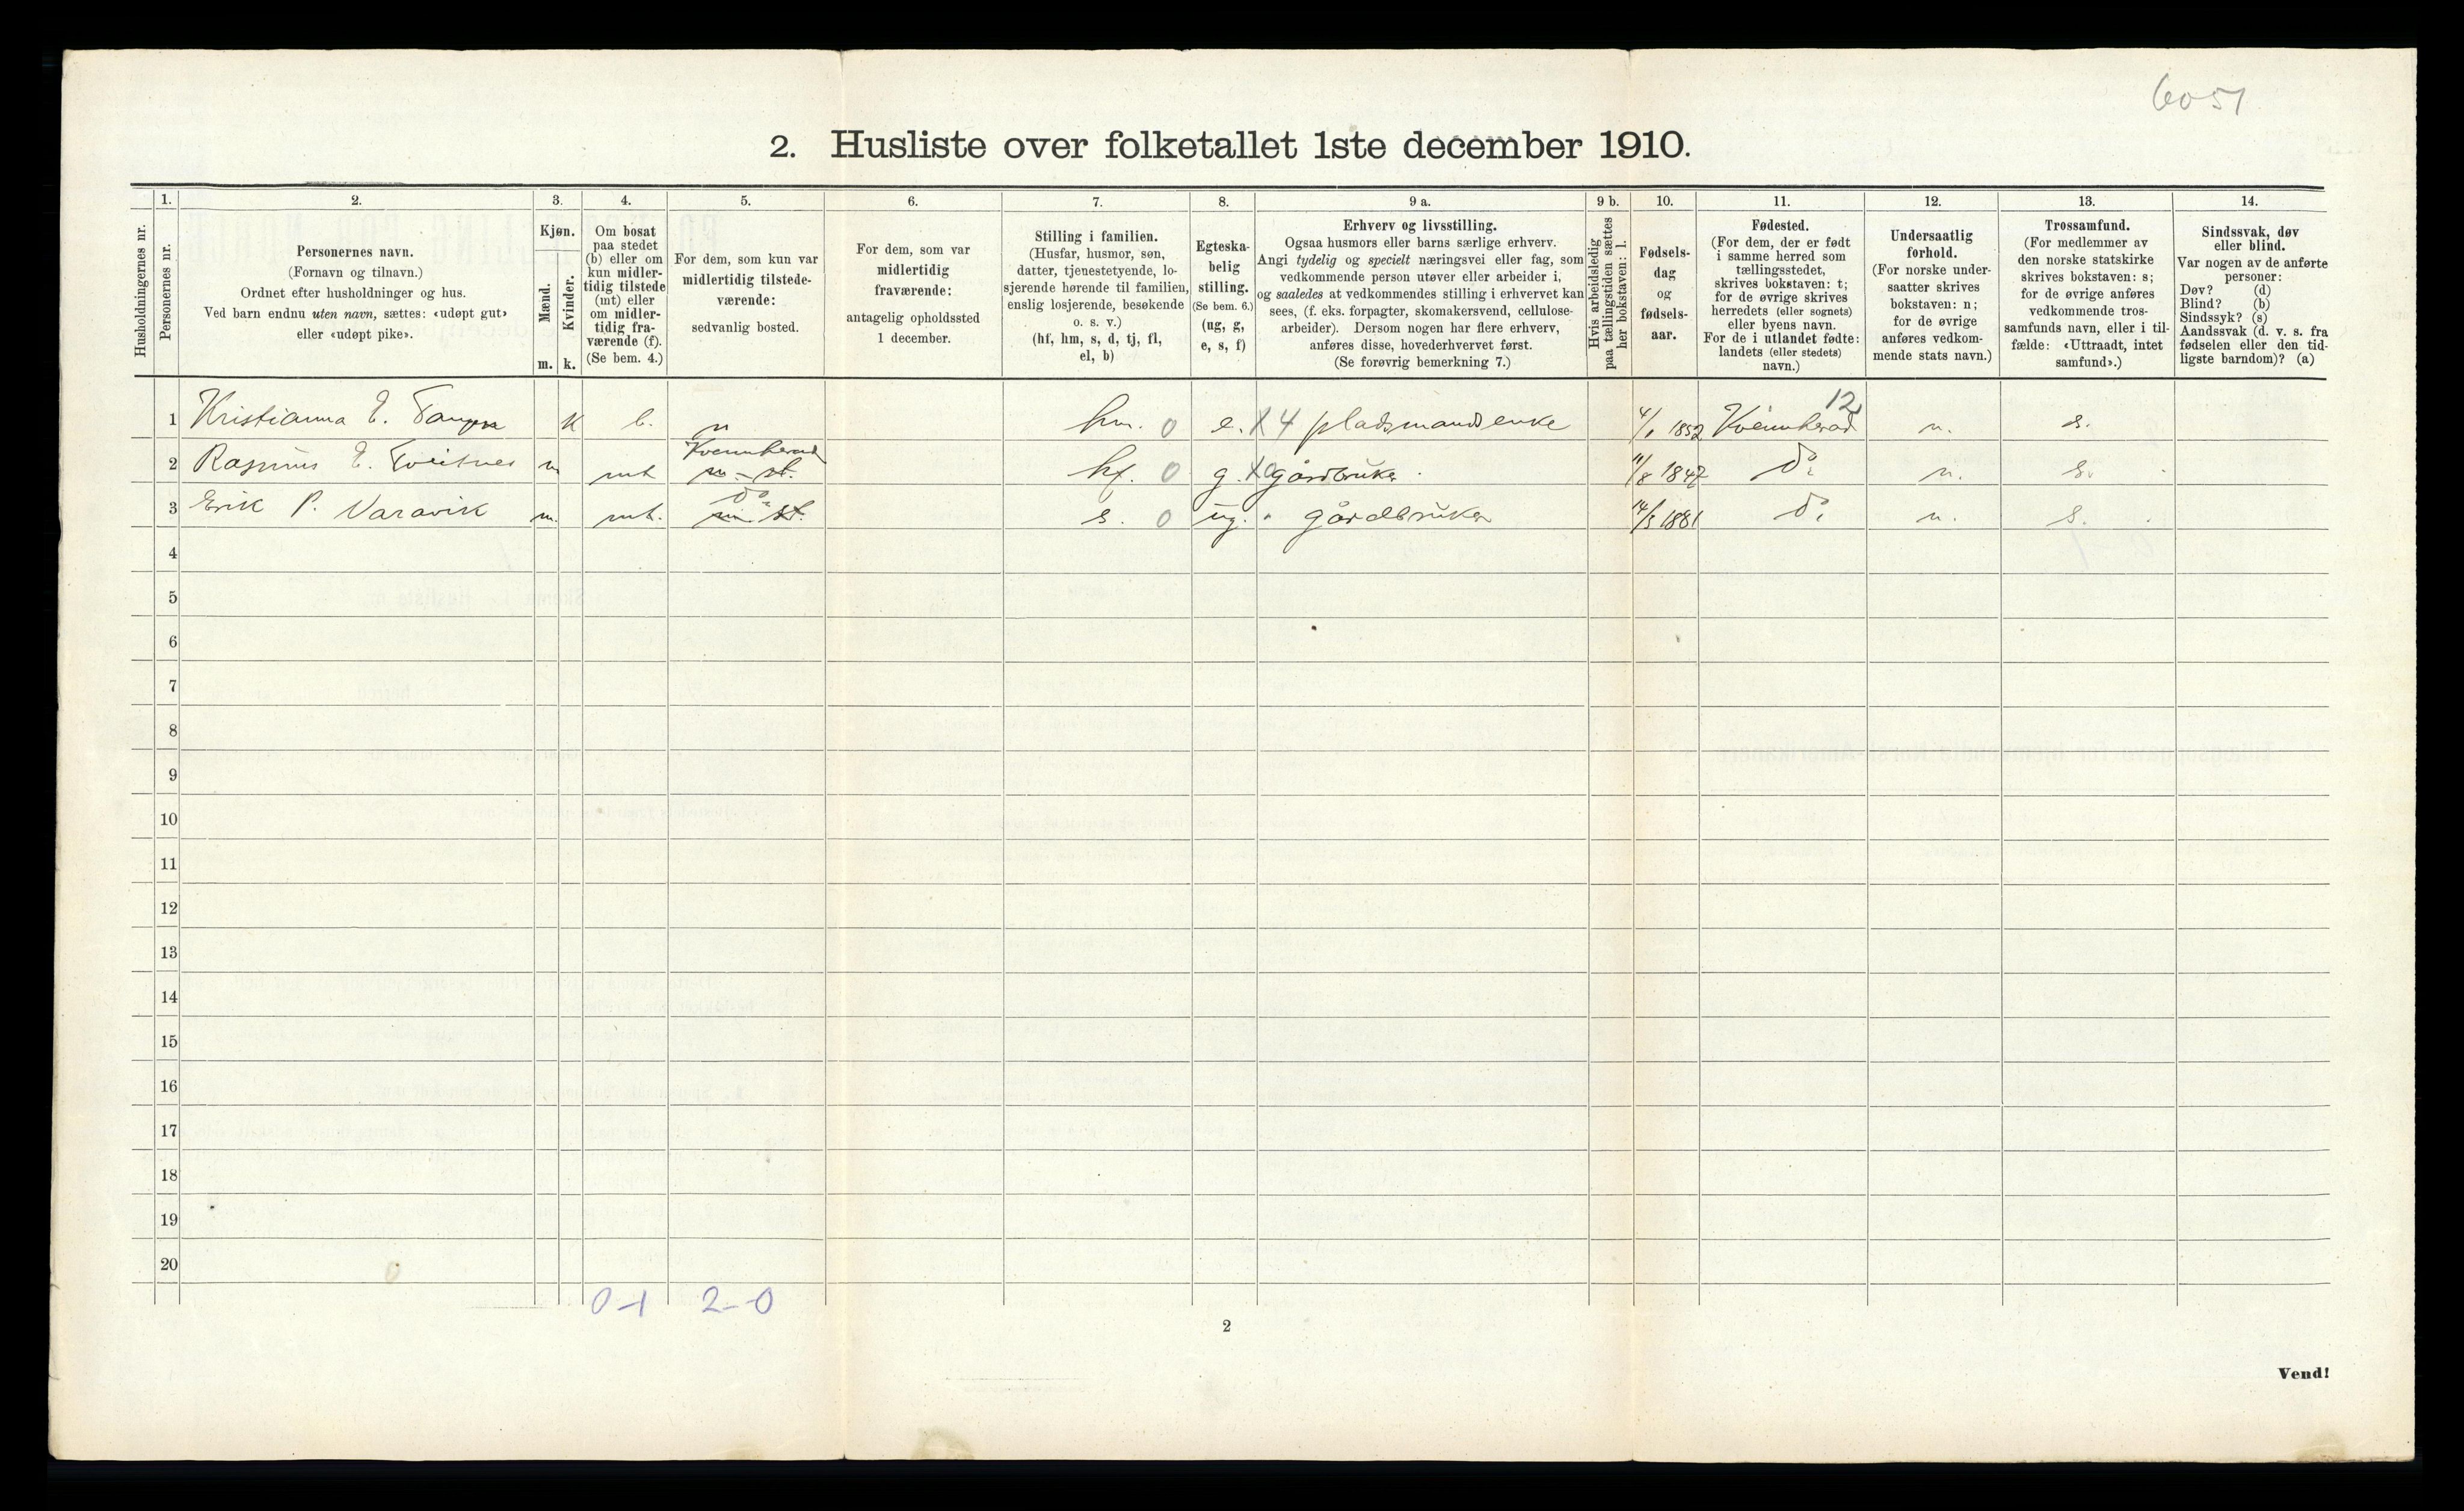 6051
2. Husliste over folketallet 1ste december 1910.
Husholdningernes nr.
1.
Personernes nr.
2.
Personernes navn.
(Fornavn og tilnavn.)
Ordnet efter husholdninger og hus.
Ved barn endnu uten navn, sættes: «udøpt gut»
eller «udøpt pike».
3.
Kjøn.
Mænd.
Kvinder.
m. k.
4.
Om bosat
paa stedet
(b) eller om
kun midler-
tidig tilstede
(mt) eller
om midler-
tidig fra-
værende (f).
(Se bem. 4.)
5.
For dem, som kun var
midlertidig tilstede-
værende:
sedvanlig bosted.
6.
For dem, som var
midlertidig
fraværende:
antagelig opholdssted
1 december.
7.
Stilling i familien.
(Husfar, husmor, søn,
datter, tjenestetyende, lo-
sjerende hørende til familien,
enslig losjerende, besøkende
o. s. v.)
(hf, hm, s, d, tj, fl,
el, b)
8.
Egteska-
belig
stilling.
(Se bem. 6.)
(ug, g,
e, s, f)
9 a.
Erhverv og livsstilling.
Ogsaa husmors eller barns særlige erhverv.
Angi tydelig og specielt næringsvei eller fag, som
vedkommende person utøver eller arbeider i,
og saaledes at vedkommendes stilling i erhvervet kan
sees, (f. eks. forpagter, skomakersvend, cellulose-
arbeider). Dersom nogen har flere erhverv,
anføres disse, hovederhvervet først.
(Se forøvrig bemerkning 7.)
9 b.
Hvis arbeidsledig
paa tællingstiden sættes
her bokstaven: l.
10.
Fødsels-
dag
og
fødsels-
aar.
11.
Fødested.
(For dem, der er født
i samme herred som
tællingsstedet,
skrives bokstaven: t;
for de øvrige skrives
herredets (eller sognets)
eller byens navn.
For de i utlandet fødte:
landets (eller stedets)
navn.)
12.
Undersaatlig
forhold.
(For norske under-
saatter skrives
bokstaven: n;
for de øvrige
anføres vedkom-
mende stats navn.)
13.
Trossamfund.
(For medlemmer av
den norske statskirke
skrives bokstaven: s;
for de øvrige anføres
vedkommende tros-
samfunds navn, eller i til-
fælde: «Uttraadt, intet
samfund».)
14.
Sindssvak, døv
eller blind.
Var nogen av de anførte
personer:
Døv? (d)
Blind? (b)
Sindssyk? (s)
Aandssvak (d. v. s. fra
fødselen eller den tid-
ligste barndom)? (a)
12
1 Kristianna E. k b. hm. 0 e. X 4 pladsmandsenke 1852 Kvinnherad n. s.
2 Rasmus E. Tveitnes m mt Kvinnherad hf. 0 g. X gårdbruker 11/8 1847 do n. s.
3 Erik P. Varavik m. mt. do s. 0 ug. " gårdbruker 14/5 1881 do n. s.
4
5
6
7
8
9
10
11
12
13
14
15
16
17
18
19
20
0-1 2-0
2
Vend!